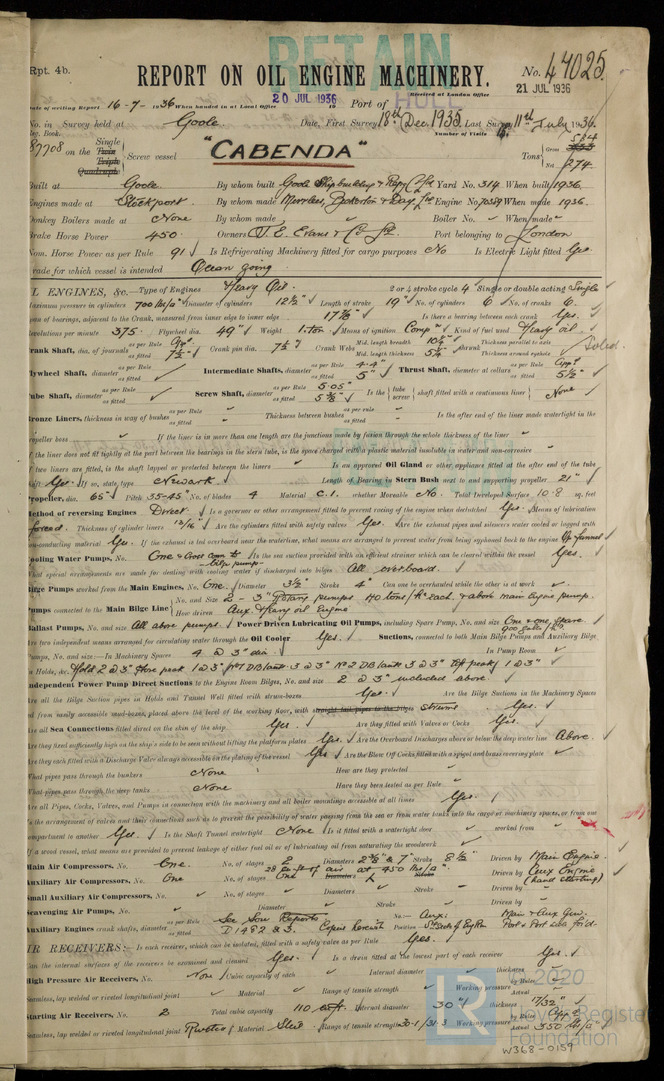 RETAIN
Rpt. 4b.
REPORT ON OIL ENGINE MACHINERY.
No. 47025
Received at London Office
21 JUL 1936
Date of writing Report 16-7-1936 When handed in at Local Office 20 JUL 1936 19 Port of HULL
No. in Survey held at Goole Date, First Survey 18th Dec. 1935 Last Survey 11th July 1936
Reg. Book. Number of Visits
87708 on the Single Twin Triple Quadruple Screw vessel "CABENDA" Tons Gross Net 274
Built at Goole By whom built Goole Shipbuilding & Repg Co Ld Yard No. 314 When built 1936
Engines made at Stockport By whom made Mirrlees, Bickerton & Day, Ld Engine No. When made 1936
Donkey Boilers made at None By whom made Boiler No. When made
Brake Horse Power 450 Owners J. E. Evans & Co Ld Port belonging to London
Nom. Horse Power as per Rule 91 Is Refrigerating Machinery fitted for cargo purposes No Is Electric Light fitted Yes
Trade for which vessel is intended Ocean going
OIL ENGINES, &c.—Type of Engines Heavy Oil 2 or 4 stroke cycle 4 Single or double acting Single
Maximum pressure in cylinders 700 lbs/□" Diameter of cylinders 12½" Length of stroke 19" No. of cylinders 6 No. of cranks 6
Span of bearings, adjacent to the Crank, measured from inner edge to inner edge Is there a bearing between each crank Yes
Revolutions per minute 375 Flywheel dia. 49" Weight 1 ton Means of ignition Comp" Kind of fuel used Heavy oil
Crank Shaft, dia. of journals as per Rule Appd as fitted 7½" Crank pin dia. 7½" Crank Webs Mid. length breadth Mid. length thickness Thickness parallel to axis Thickness around eyehole Solid
Flywheel Shaft, diameter as per Rule as fitted Intermediate Shafts, diameter as per Rule 4.4" as fitted 5" Thrust Shaft, diameter at collars as per Rule Appd as fitted
Tube Shaft, diameter as per Rule as fitted Screw Shaft, diameter as per Rule 5.05" as fitted Is the tube screw shaft fitted with a continuous liner None
Bronze Liners, thickness in way of bushes as per Rule as fitted Thickness between bushes as per rule as fitted Is the after end of the liner made watertight in the
propeller boss If the liner is in more than one length are the junctions made by fusion through the whole thickness of the liner
If the liner does not fit tightly at the part between the bearings in the stern tube, is the space charged with a plastic material insoluble in water and non-corrosive
If two liners are fitted, is the shaft lapped or protected between the liners Is an approved Oil Gland or other appliance fitted at the after end of the tube
shaft Yes If so, state type Newark Length of Bearing in Stern Bush next to and supporting propeller 21"
Propeller, dia. 65" Pitch 35-45 No. of blades 4 Material C.I. whether Moveable No Total Developed Surface 10.8 sq. feet
Method of reversing Engines Direct Is a governor or other arrangement fitted to prevent racing of the engine when declutched Yes Means of lubrication
forced Thickness of cylinder liners Are the cylinders fitted with safety valves Yes Are the exhaust pipes and silencers water cooled or lagged with
non-conducting material Yes If the exhaust is led overboard near the waterline, what means are arranged to prevent water from being syphoned back to the engine Up funnel
Cooling Water Pumps, No. One Is the sea suction provided with an efficient strainer which can be cleared within the vessel Yes
What special arrangements are made for dealing with cooling water if discharged into bilges All overboard
Bilge Pumps worked from the Main Engines, No. One Diameter 3½" Stroke 4" Can one be overhauled while the other is at work
Pumps connected to the Main Bilge Line No. and Size 2 - 3" Rotary pumps 40 tons/hr each & above main engine pump.
How driven Aux Heavy oil Engine
Ballast Pumps, No. and size All above pumps Power Driven Lubricating Oil Pumps, including Spare Pump, No. and size One & one spare
Are two independent means arranged for circulating water through the Oil Cooler Yes Suctions, connected to both Main Bilge Pumps and Auxiliary Bilge
Pumps, No. and size:—In Machinery Spaces 4 @ dia In Pump Room
In Holds, &c. Hold 2 @ 3" Fore peak 1 @ 3" No 1 DB tank 3 @ 3" No 2 DB tank 3 @ 3" Aft peak 1 @ 3"
Independent Power Pump Direct Suctions to the Engine Room Bilges, No. and size 2 @ 3" included above.
Are all the Bilge Suction pipes in Holds and Tunnel Well fitted with strum-boxes Yes Are the Bilge Suctions in the Machinery Spaces
led from easily accessible mud-boxes, placed above the level of the working floor, with straight tail pipes to the bilges strums Yes
Are all Sea Connections fitted direct on the skin of the ship Yes Are they fitted with Valves or Cocks Yes
Are they fixed sufficiently high on the ship's side to be seen without lifting the platform plates Yes Are the Overboard Discharges above or below the deep water line Above
Are they each fitted with a Discharge Valve always accessible on the plating of the vessel Yes Are the Blow Off Cocks fitted with a spigot and brass covering plate
What pipes pass through the bunkers None How are they protected
What pipes pass through the deep tanks None Have they been tested as per Rule
Are all Pipes, Cocks, Valves, and Pumps in connection with the machinery and all boiler mountings accessible at all times Yes
Is the arrangement of valves and their connections such as to prevent the possibility of water passing from the sea or from water tanks into the cargo or machinery spaces, or from one
compartment to another Yes Is the Shaft Tunnel watertight None Is it fitted with a watertight door worked from
If a wood vessel, what means are provided to prevent leakage of either fuel oil or of lubricating oil from saturating the woodwork
Main Air Compressors, No. One No. of stages 2 Diameters 2⅞" & 7" Stroke 8½" Driven by Main Engine
Auxiliary Air Compressors, No. One No. of stages One 28 cu ft of air at 450 lbs/□" Driven by Aux Engine (hand starting)
Small Auxiliary Air Compressors, No. No. of stages Diameters Stroke Driven by
Scavenging Air Pumps, No. Diameter Stroke Driven by
Auxiliary Engines crank shafts, diameter as per Rule as fitted See Son Reports D1482 & 3. Copies herewith No.:— Aux. Position Main & Aux Gen.
AIR RECEIVERS:—Is each receiver, which can be isolated, fitted with a safety valve as per Rule Yes
Can the internal surfaces of the receivers be examined and cleaned Yes Is a drain fitted at the lowest part of each receiver Yes
High Pressure Air Receivers, No. None Cubic capacity of each Internal diameter thickness
Seamless, lap welded or riveted longitudinal joint Material Range of tensile strength Working pressure by Rules Actual
Starting Air Receivers, No. 2 Total cubic capacity 110 c.ft. Internal diameter 30" thickness 17/32"
Seamless, lap welded or riveted longitudinal joint Riveted Material Steel Range of tensile strength Working pressure by Rules Appd Actual 350 lbs/□"
LR
© 2020
Lloyd's Register
Foundation
W368-0159